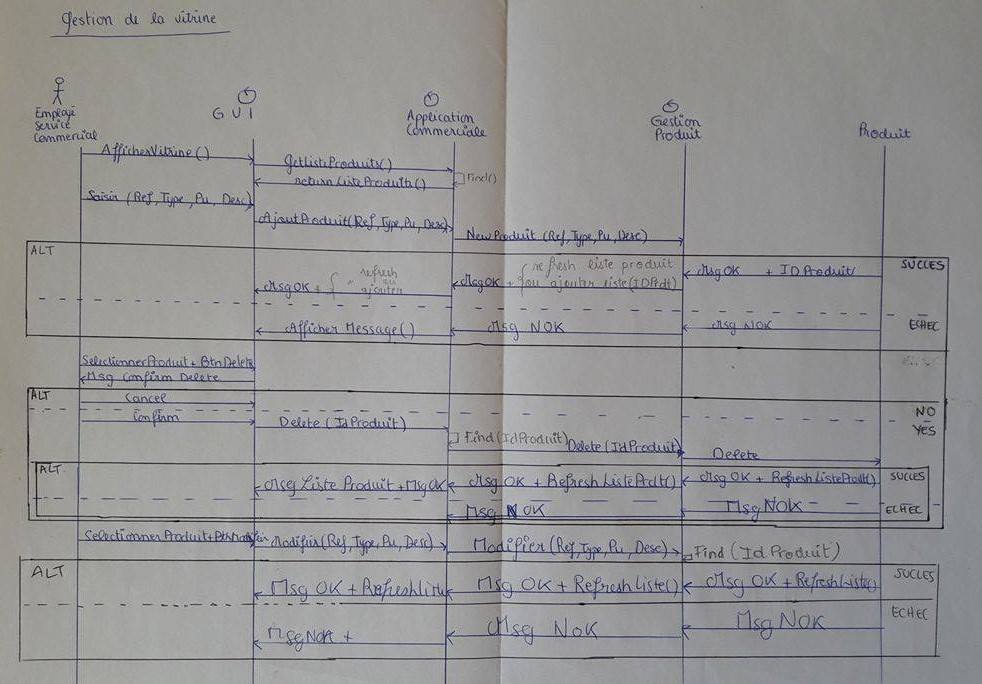 Gestion de la vitrine
Employé
Service
Commercial
GUI
Application
Commerciale
Gestion
Produit
Produit
AfficherVitrine()
GetListeProduits()
return ListeProduits()
Find()
Saisir (Ref, Type, Pu, Desc)
AjoutProduit(Ref, Type, Pu, Desc)
NewProduit (Ref, Type, Pu, Desc)
ALT
SUCCES
MsgOK + { refresh
ou
ajouter
MsgOK + { refresh liste produit
ou ajouter liste (IDPrdt)
MsgOK + IDProduit
ECHEC
Afficher Message()
Msg NOK
Msg NOK
SelectionnerProduit + BtnDelete
Msg Confirm Delete
ALT
Cancel
NO
Confirm
YES
Delete (IdProduit)
Find (IdProduit)
Delete (IdProduit)
Delete
ALT
SUCCES
Msg Liste Produit + MsgOK
Msg OK + RefreshListePrdt()
Msg OK + RefreshListePrdt()
ECHEC
Msg NOK
Msg NOK
SelectionnerProduit +
Modifier (Ref, Type, Pu, Desc)
Modifier (Ref, Type, Pu, Desc)
Find (IdProduit)
ALT
SUCCES
Msg OK + RefreshListe
Msg OK + RefreshListe()
Msg OK + RefreshListe()
ECHEC
MsgNOK +
Msg NOK
Msg NOK